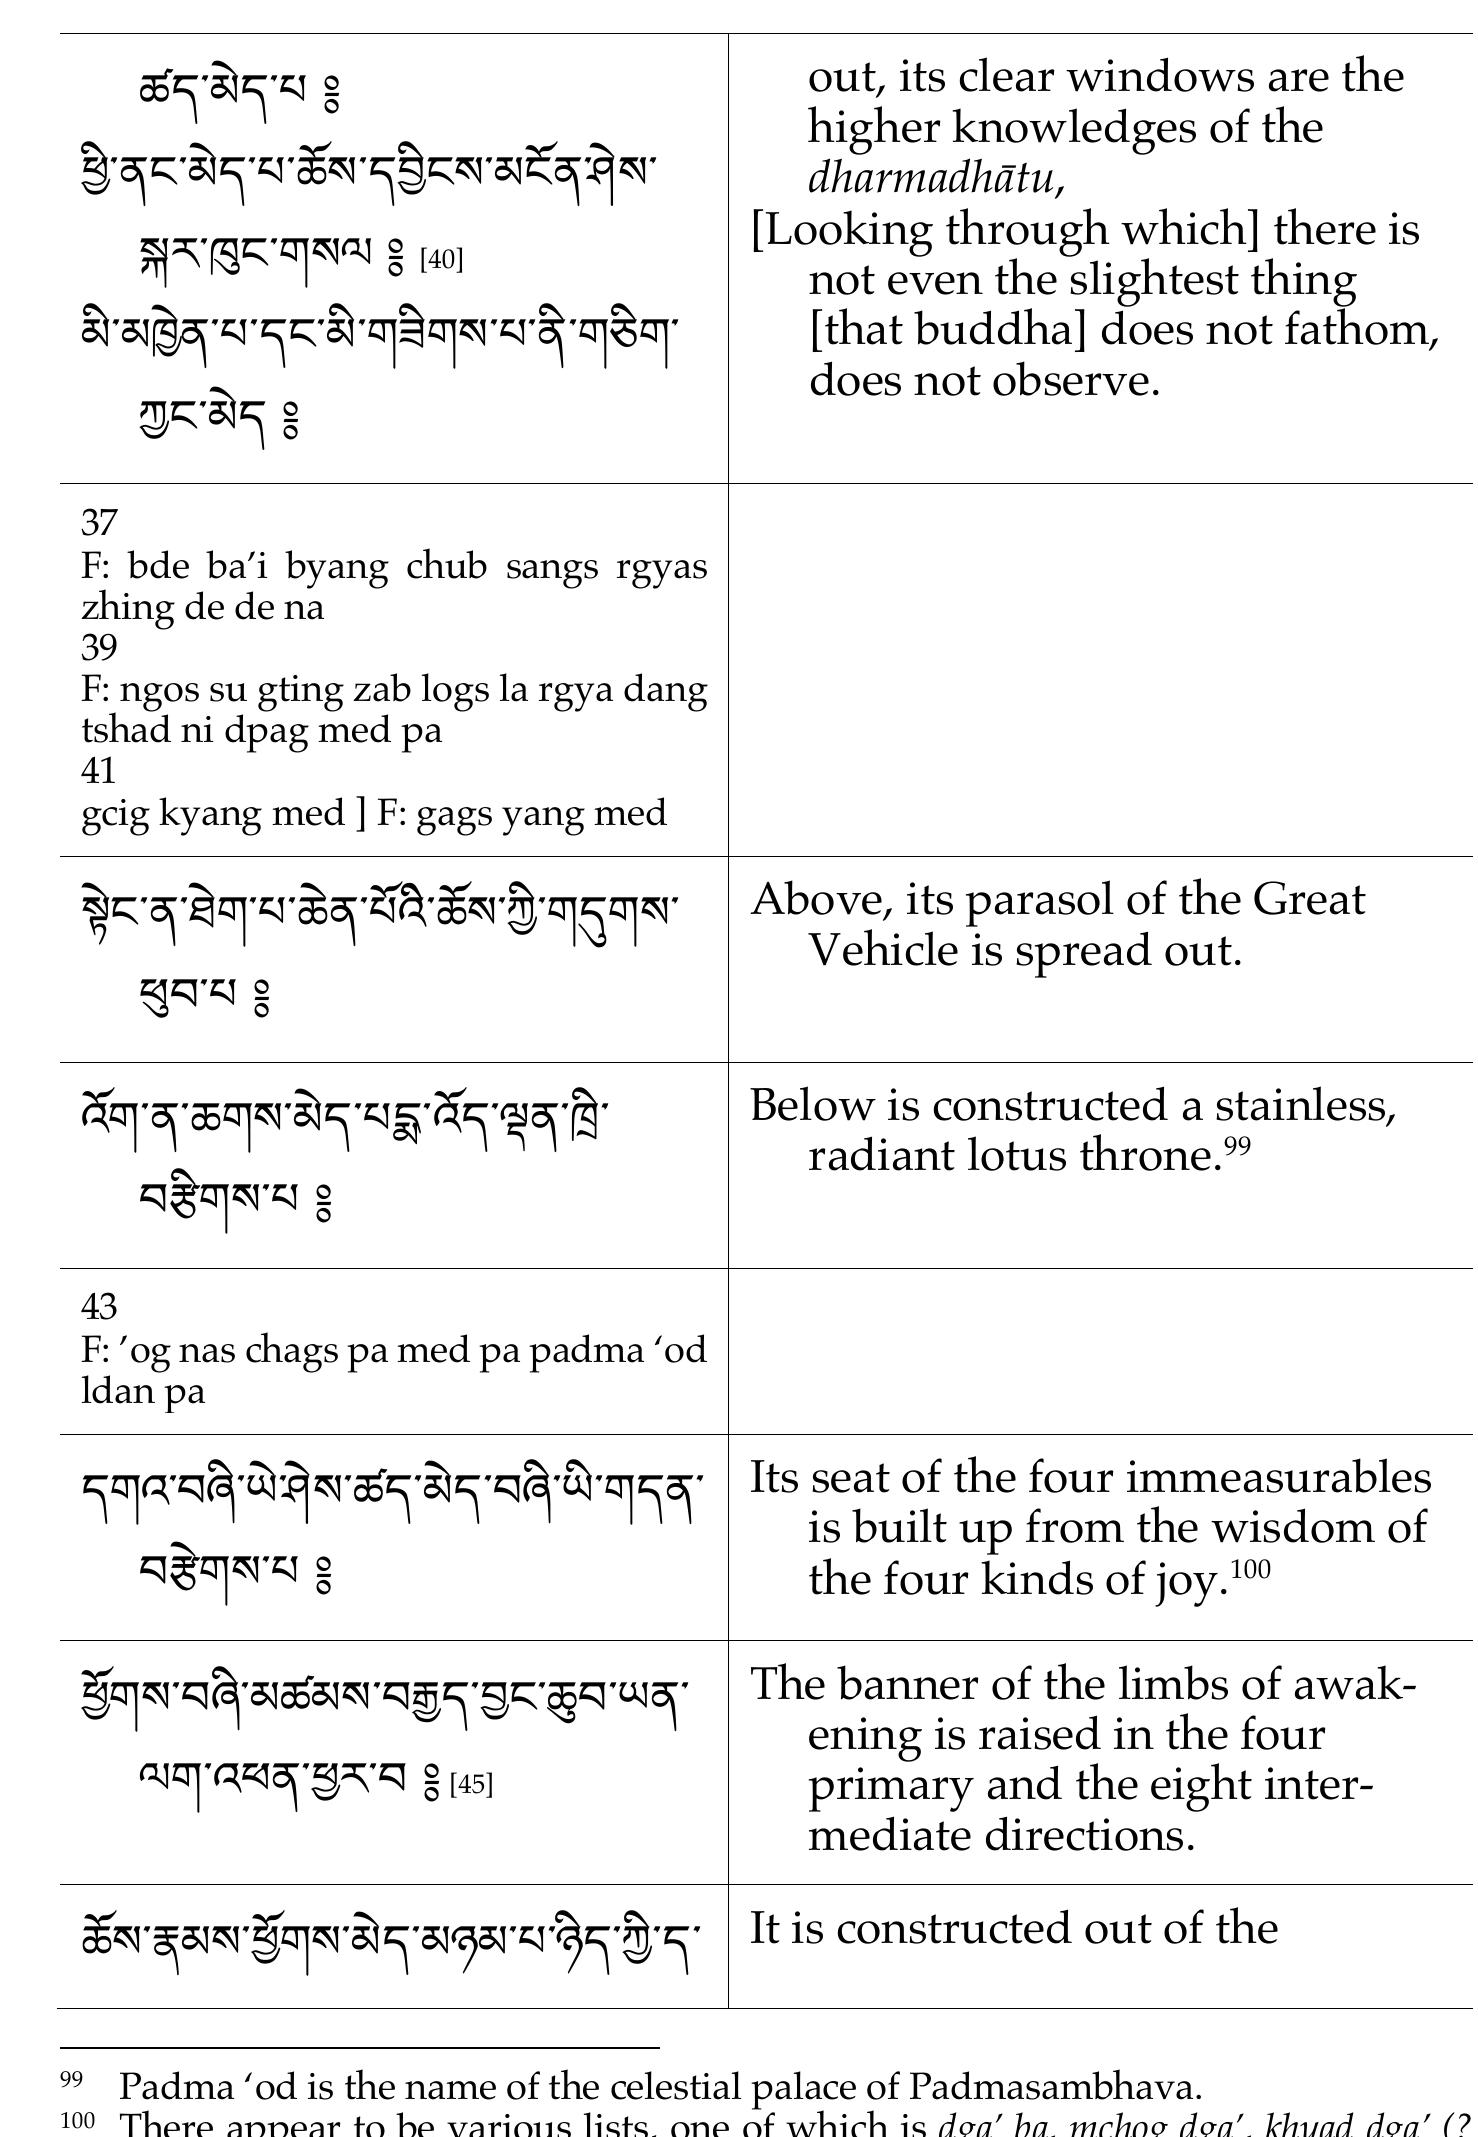 ཚད་མེད་པ༔
ཕྱི་ནང་མེད་པ་ཆོས་དབྱིངས་མངོན་ཤེས་
སྐར་ཁུང་གསལ༔ [40]
མི་མཁྱེན་པ་དང་མི་གཟིགས་པ་ནི་གཅིག་
ཀྱང་མེད༔
out, its clear windows are the
higher knowledges of the
dharmadhātu,
[Looking through which] there is
not even the slightest thing
[that buddha] does not fathom,
does not observe.
37
F: bde ba’i byang chub sangs rgyas
zhing de de na
39
F: ngos su gting zab logs la rgya dang
tshad ni dpag med pa
41
gcig kyang med ] F: gags yang med
སྟེང་ན་ཐེག་པ་ཆེན་པོའི་ཆོས་ཀྱི་གདུགས་
ཕུབ་པ༔
Above, its parasol of the Great
Vehicle is spread out.
འོག་ན་ཆགས་མེད་པདྨ་འོད་ལྡན་ཁྲི་
བརྩིགས་པ༔
Below is constructed a stainless,
radiant lotus throne.99
43
F: ’og nas chags pa med pa padma ‘od
ldan pa
དགའ་བཞི་ཡེ་ཤེས་ཚད་མེད་བཞི་ཡི་གདན་
བརྩེགས་པ༔
Its seat of the four immeasurables
is built up from the wisdom of
the four kinds of joy.100
ཕྱོགས་བཞི་མཚམས་བརྒྱད་བྱང་ཆུབ་ཡན་
ལག་འཕན་ཕྱར་བ༔ [45]
The banner of the limbs of awak-
ening is raised in the four
primary and the eight inter-
mediate directions.
ཆོས་རྣམས་ཕྱོགས་མེད་མཉམ་པ་ཉིད་ཀྱི་ད་
It is constructed out of the
99 Padma ‘od is the name of the celestial palace of Padmasambhava.
100 There appear to be various lists, one of which is dga’ ba, mchog dga’, khyad dga’ (?